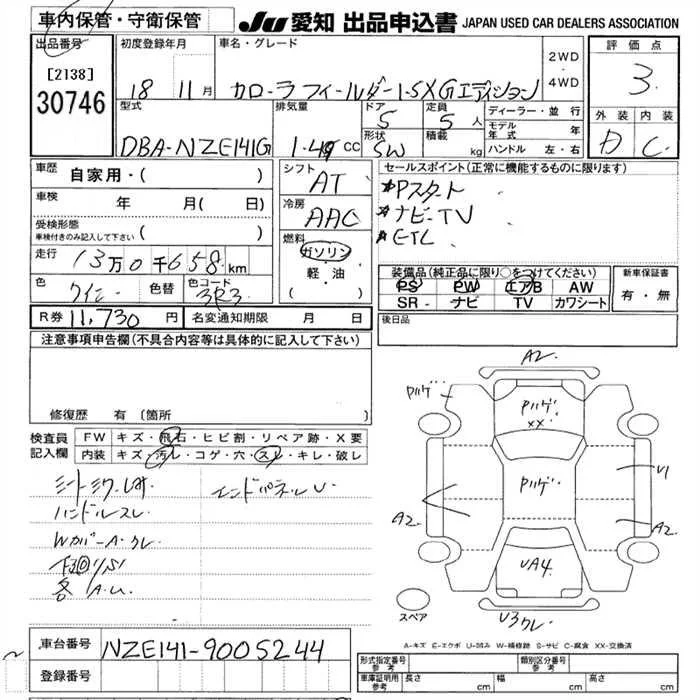 車内保管・守衛保管
JU 愛知 出品申込書 JAPAN USED CAR DEALERS ASSOCIATION
出品番号 初度登録年月 車名・グレード 2WD 評価点
[2138] 18 11月 カローラフィールダー1-5XGエディション 4WD 3
30746 型式 排気量 ドア 定員 ディーラー・並行 外装 内装
DBA-NZE141G 1.49cc 5 5人 モデル年式 年 D C
形状 SW 積載 kg ハンドル 左・右
車歴 自家用・( ) シフト AT セールスポイント(正常に機能するものに限ります)
車検 年 月( 日) 冷房 AAC *Pスタート
受検形態 *ナビ-TV
車検付きのみ記入して下さい ( ) 燃料 *ETC
走行 13万0千658km ガソリン
軽・油
( )
色 ワイン 色替 色コード 3R3
装備品(純正品に限り○をつけてください) 新車保証書
PS PW エアB AW 有・無
SR ナビ TV カワシート
R券 11,730円 名変通知期限 月 日 後日品
注意事項申告欄(不具合内容等は具体的に記入して下さい)
修復歴 有 〔箇所
検査員 FW キズ・飛石・ヒビ割・リペア跡・X要
記入欄 内装 キズ・汚レ・コゲ・穴・スレ・キレ・破レ
シートシワ.
エンドパネルU.
ハンドルスレ
WカバーA.クレ
各 A.U.
A2
Pハゲ
Pハゲ
XX
Pハゲ
U1
A2
A2
UA4
U3クレ
スペア
A-キズ E-エクボ U-凹み W-補修跡 S-サビ C-腐食 XX-交換済
車台番号 NZE141-9005244
登録番号
形式指定番号 参考 類別区分番号 参考
車庫証明用 参考 長さ cm 幅 cm 高さ cm